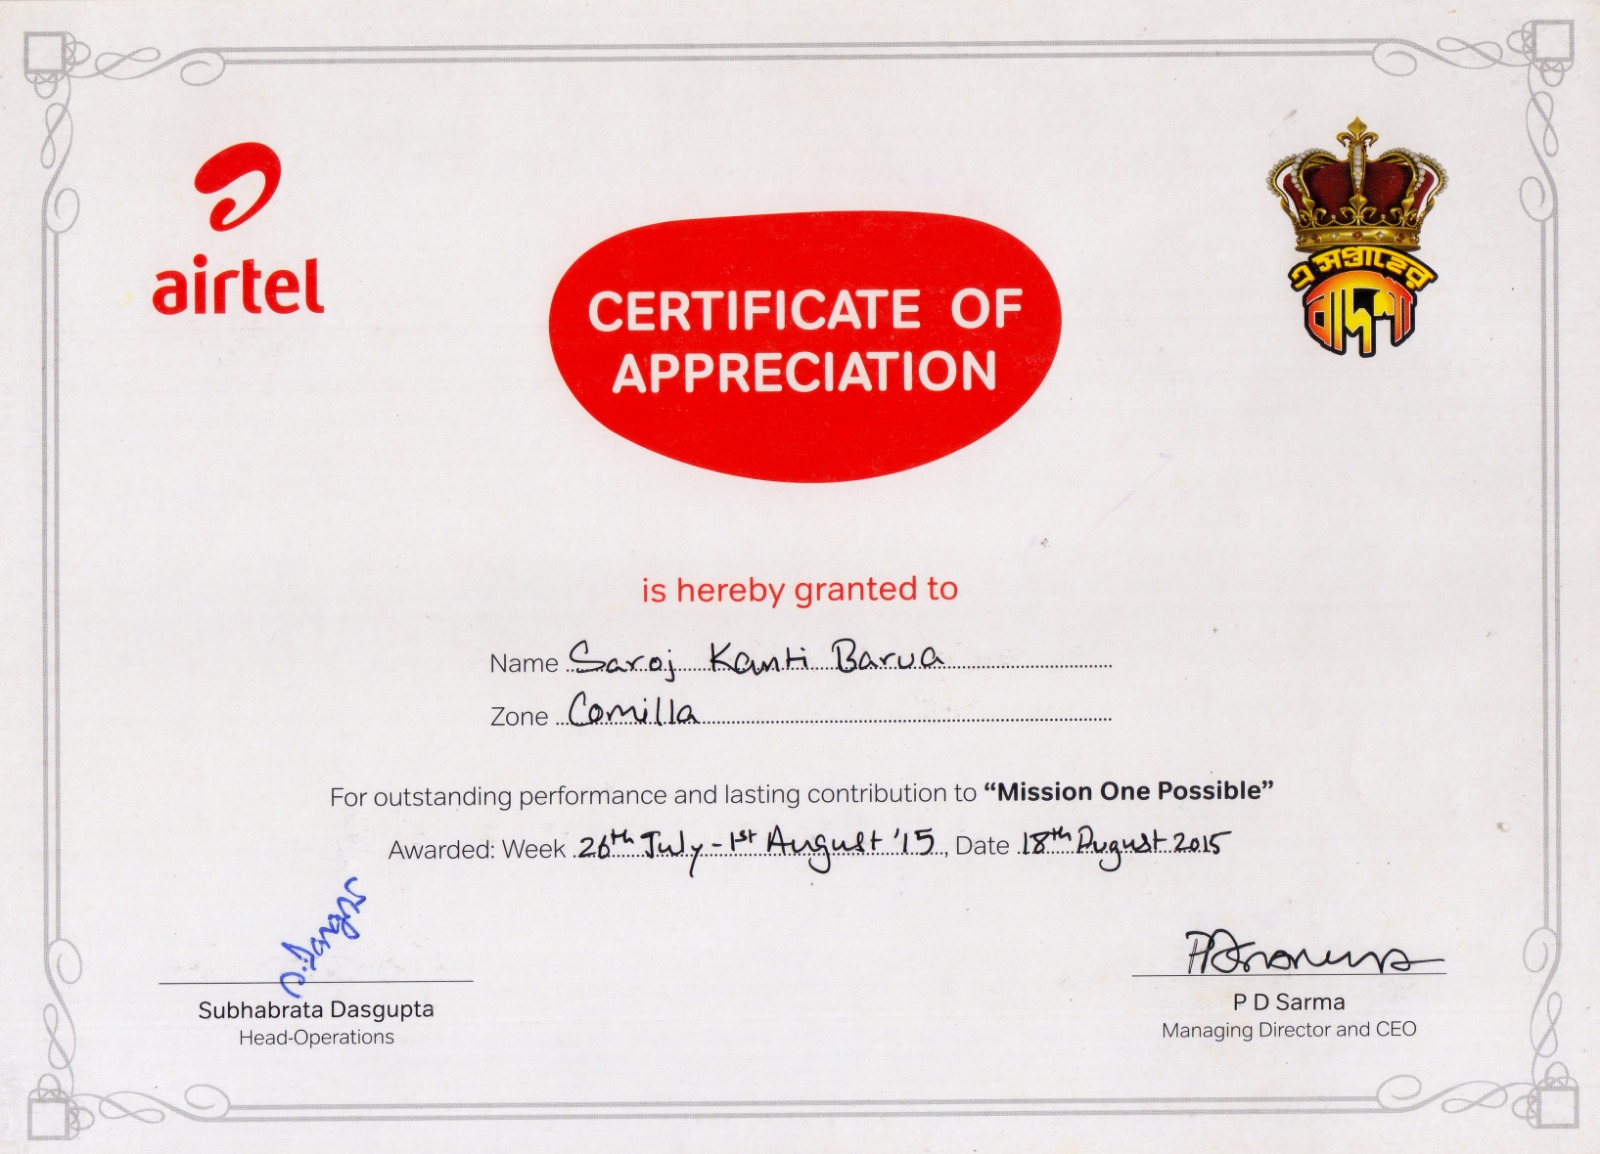 airtel
এ সপ্তাহের
বাদশা
CERTIFICATE OF
APPRECIATION
is hereby granted to
Name Saroj Kanti Barua
Zone Comilla
For outstanding performance and lasting contribution to “Mission One Possible”
Awarded: Week 26th July - 1st August '15, Date 18th August 2015
Subhabrata Dasgupta
Head-Operations
P D Sarma
Managing Director and CEO